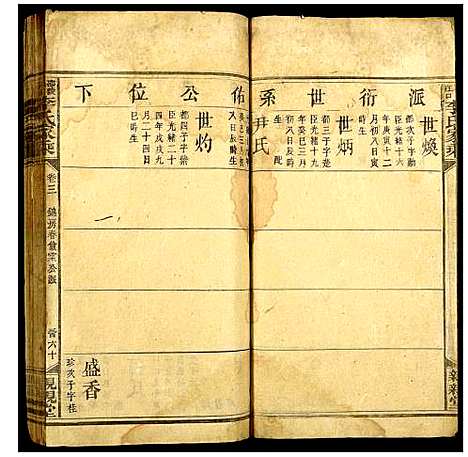 派衍世系
世煥
都次子字
臣光緒十六
年庚寅十二
月初八日寅
時生
世炳
都三子字楚
臣光緒十九
年癸巳三月
時生 配
尹氏
入日辰時生
佑公位下
世灼
都四子字
臣光緒二十
四年戊戌九
月二十四日
巳時生
盛香
珍次子字桂
李氏家乘
卷三
六十
親親堂
李氏家乘
親親堂